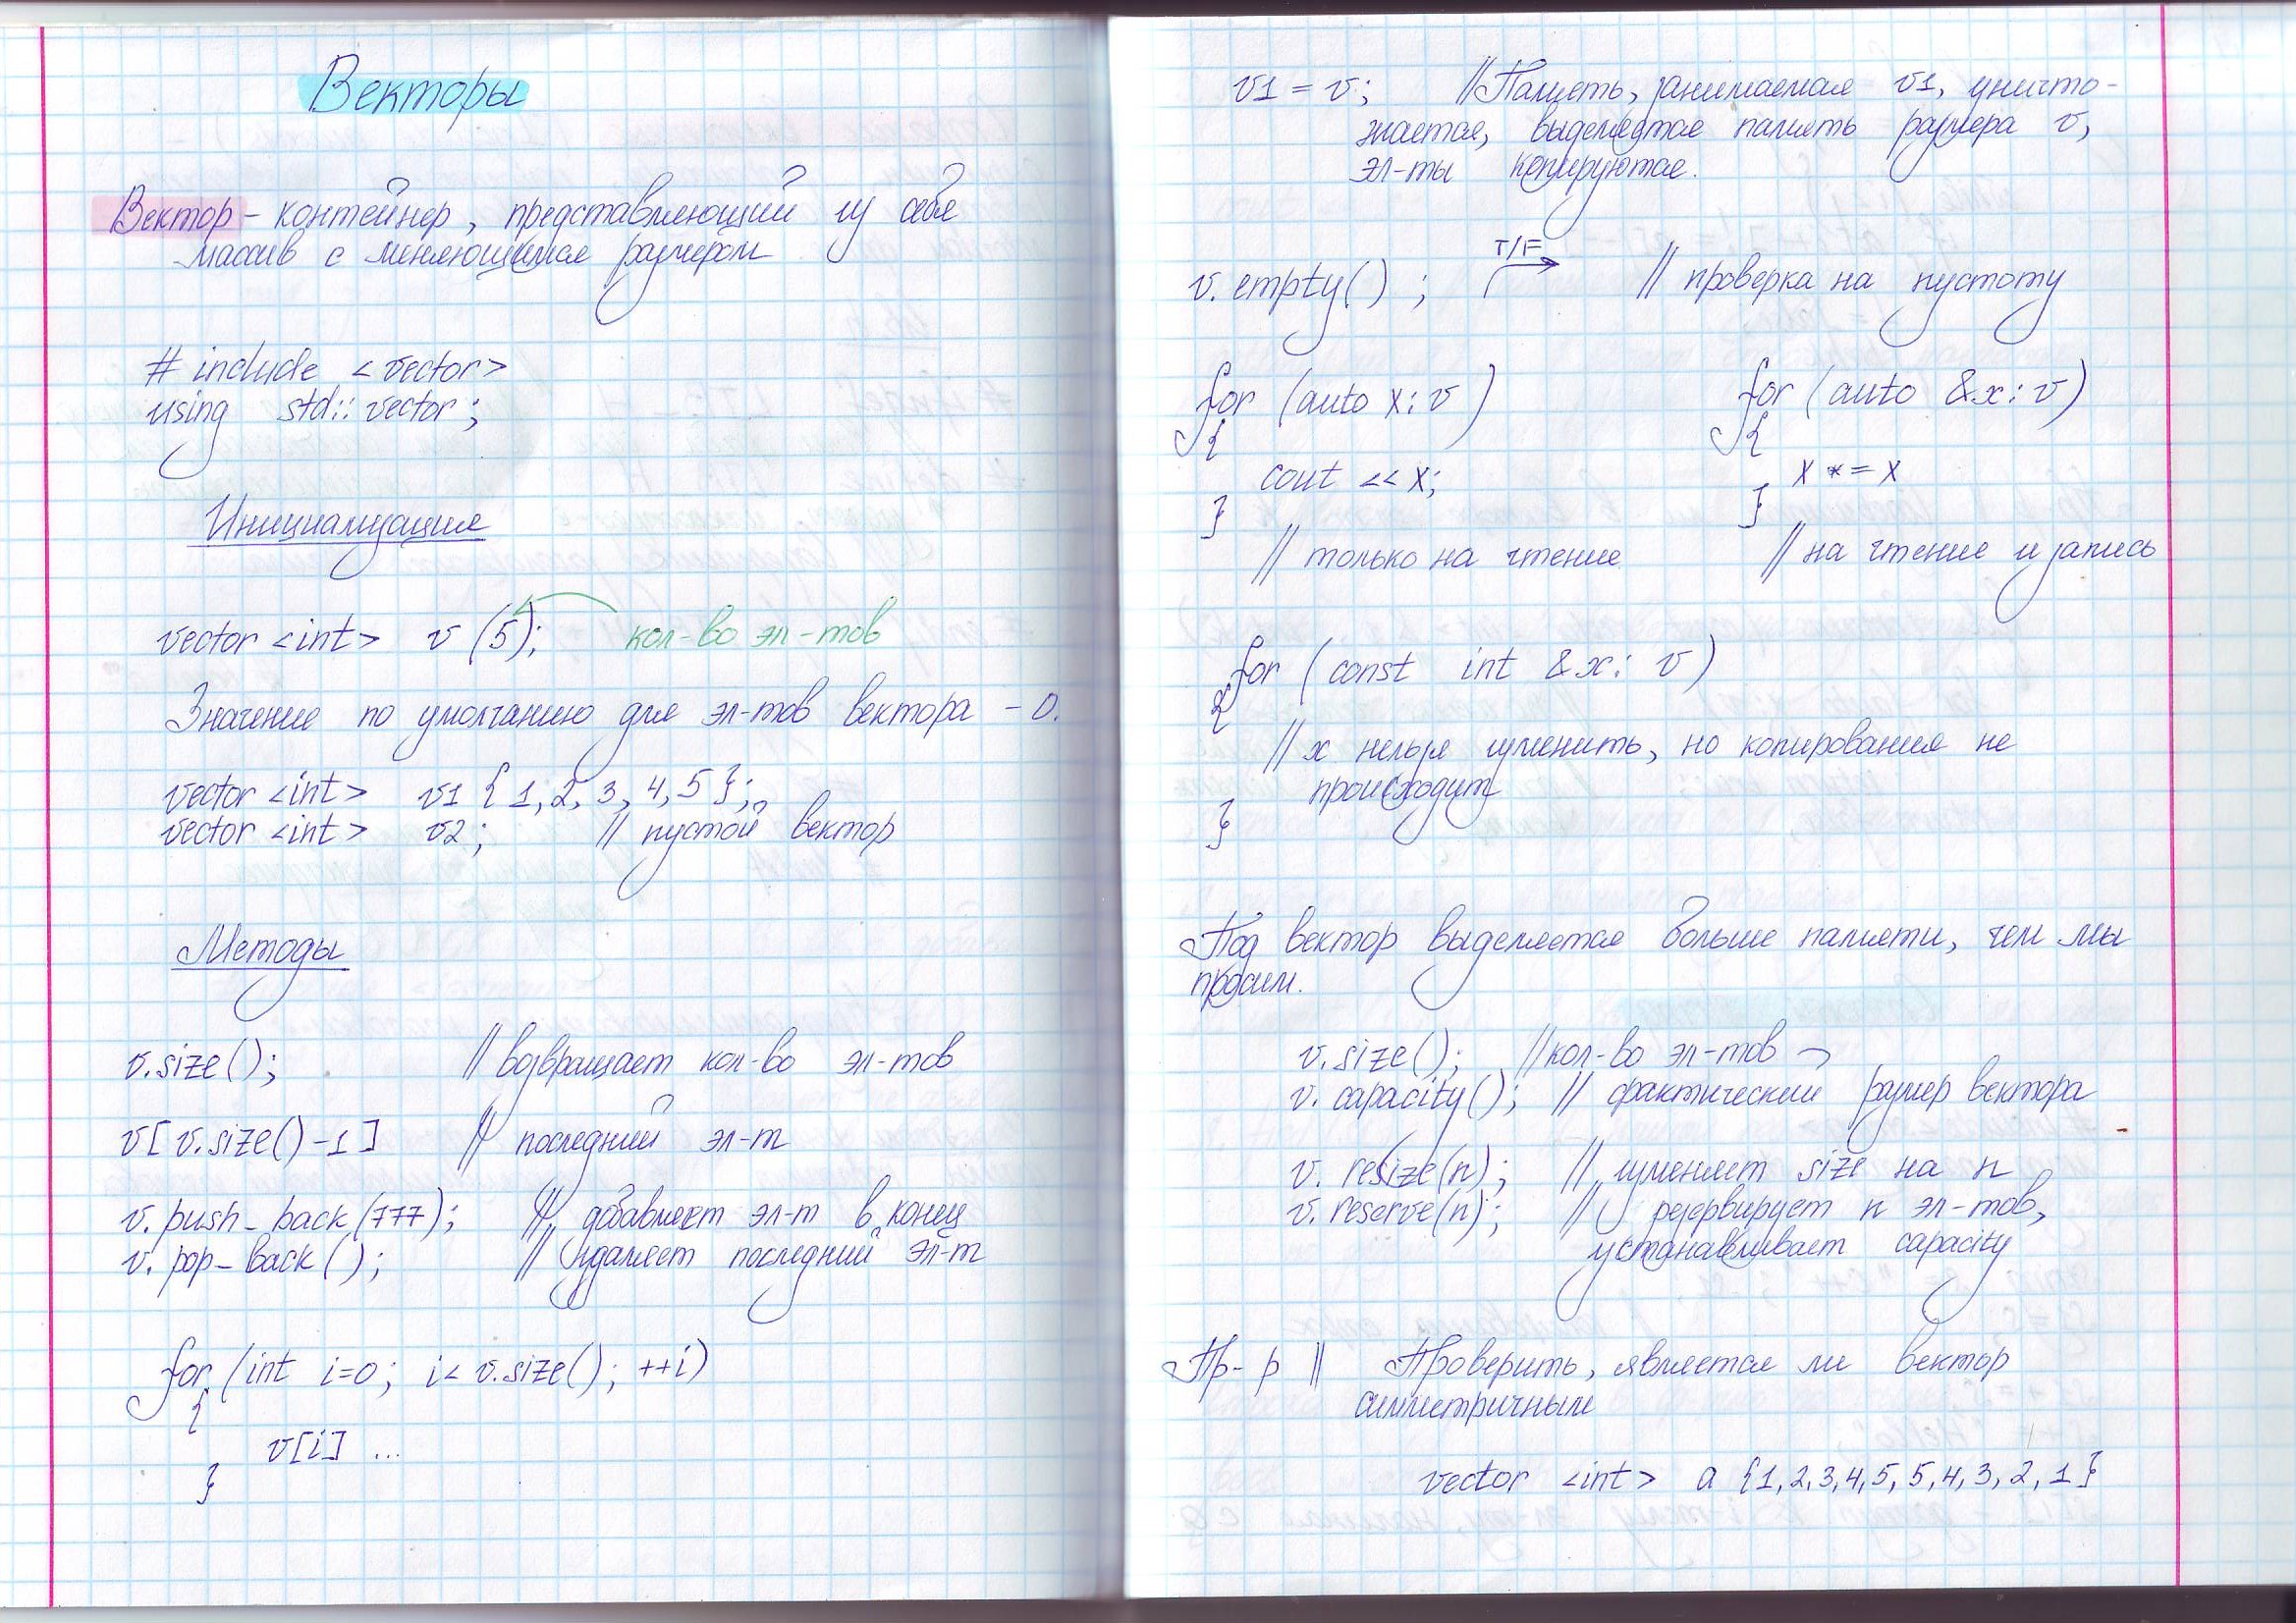 Векторы
Вектор - контейнер, представляющий из себя
массив с меняющимся размером
# include <vector>
using std::vector;
Инициализация
vector <int> v (5); кол-во эл-тов
Значение по умолчанию для эл-тов вектора - 0.
vector <int> v1 {1,2,3,4,5};
vector <int> v2; // пустой вектор
Методы
v.size(); // возвращает кол-во эл-тов
v[v.size()-1] // последний эл-т
v.push_back(777); // добавляет эл-т в конец
v.pop_back(); // удаляет последний эл-т
for (int i=0; i< v.size(); ++i)
{
v[i] ...
}
v1 = v; // Память, занимаемая v1, уничто-
жается, выделяется память размера v,
эл-ты копируются.
T/F
v.empty(); // проверка на пустоту
for (auto x: v) for (auto &x: v)
{ {
cout << x; x *= x
} }
// только на чтение // на чтение и запись
for (const int &x: v)
{
// x нельзя изменить, но копирования не
происходит
}
Под вектор выделяется больше памяти, чем мы
просим.
v.size(); // кол-во эл-тов
v.capacity(); // фактический размер вектора
v.resize(n); // изменяет size на n
v.reserve(n); // резервирует n эл-тов,
устанавливает capacity
Пр-р // Проверить, является ли вектор
симметричным
vector <int> a {1,2,3,4,5,5,4,3,2,1}